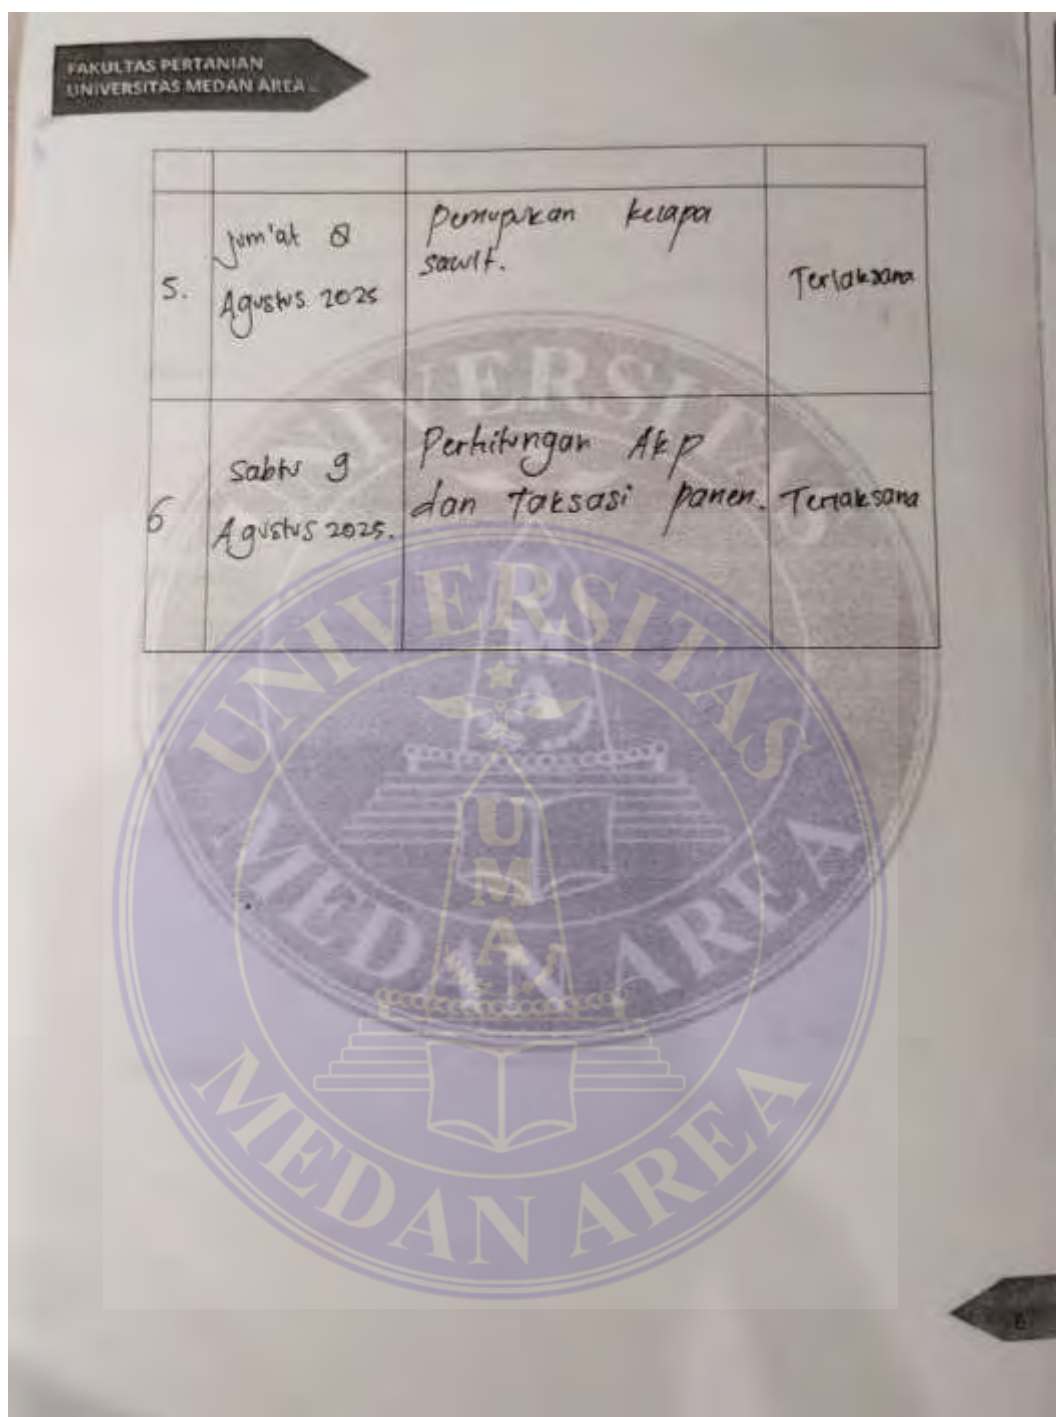 FAKULTAS PERTANIAN
UNIVERSITAS MEDAN AREA
5.
Jum'at 8
Agustus 2025
Pemupukan kelapa
sawit.
Terlaksana
6
Sabtu 9
Agustus 2025.
Perhitungan Akp
dan taksasi panen.
Terlaksana
UNIVERSITAS
MEDAN AREA
UMA
UNIVERSITAS
MEDAN AREA